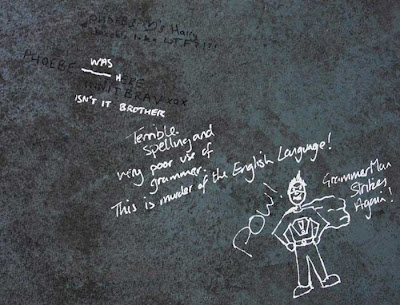 PHOEBE
WAS
H
INNIT BRA XOX
ISN'T IT BROTHER
Terrible
Spelling and
very poor use of
grammer.
This is murder of the English Language!
POW!
GrammerMan
Strikes
Again!